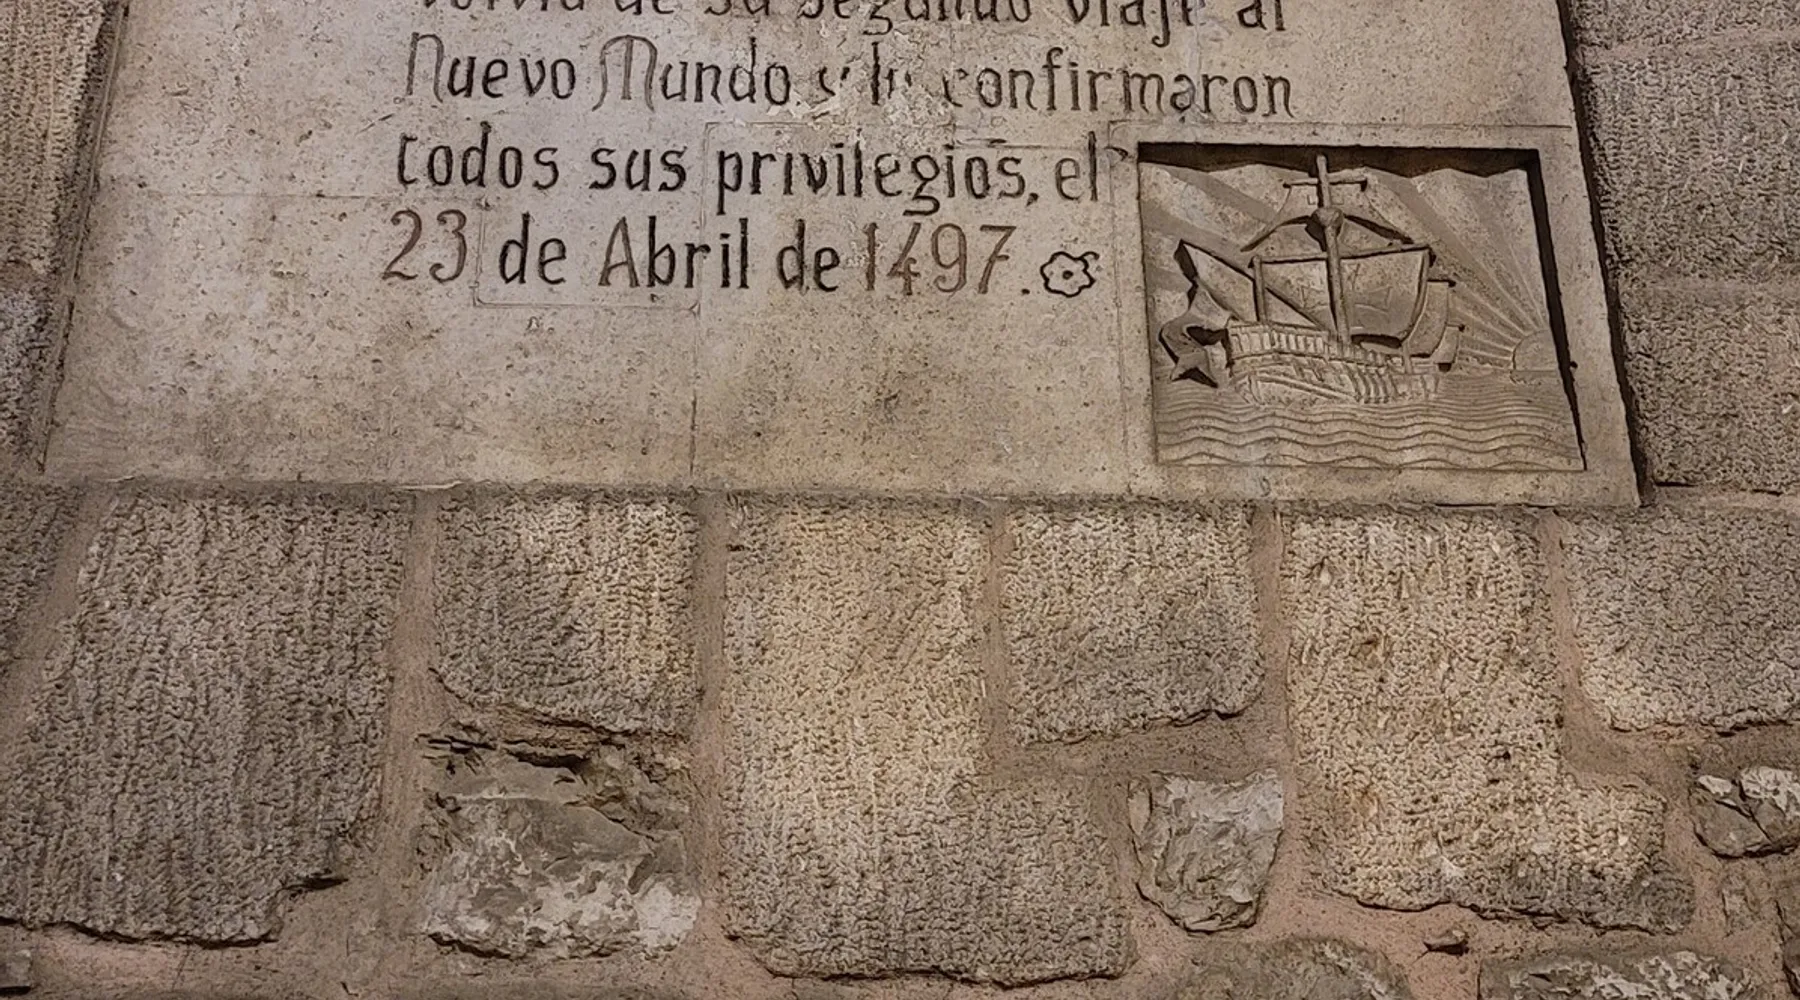 volvía de su segundo viaje al
Nuevo Mundo y le confirmaron
todos sus privilegios, el
23 de Abril de 1497.